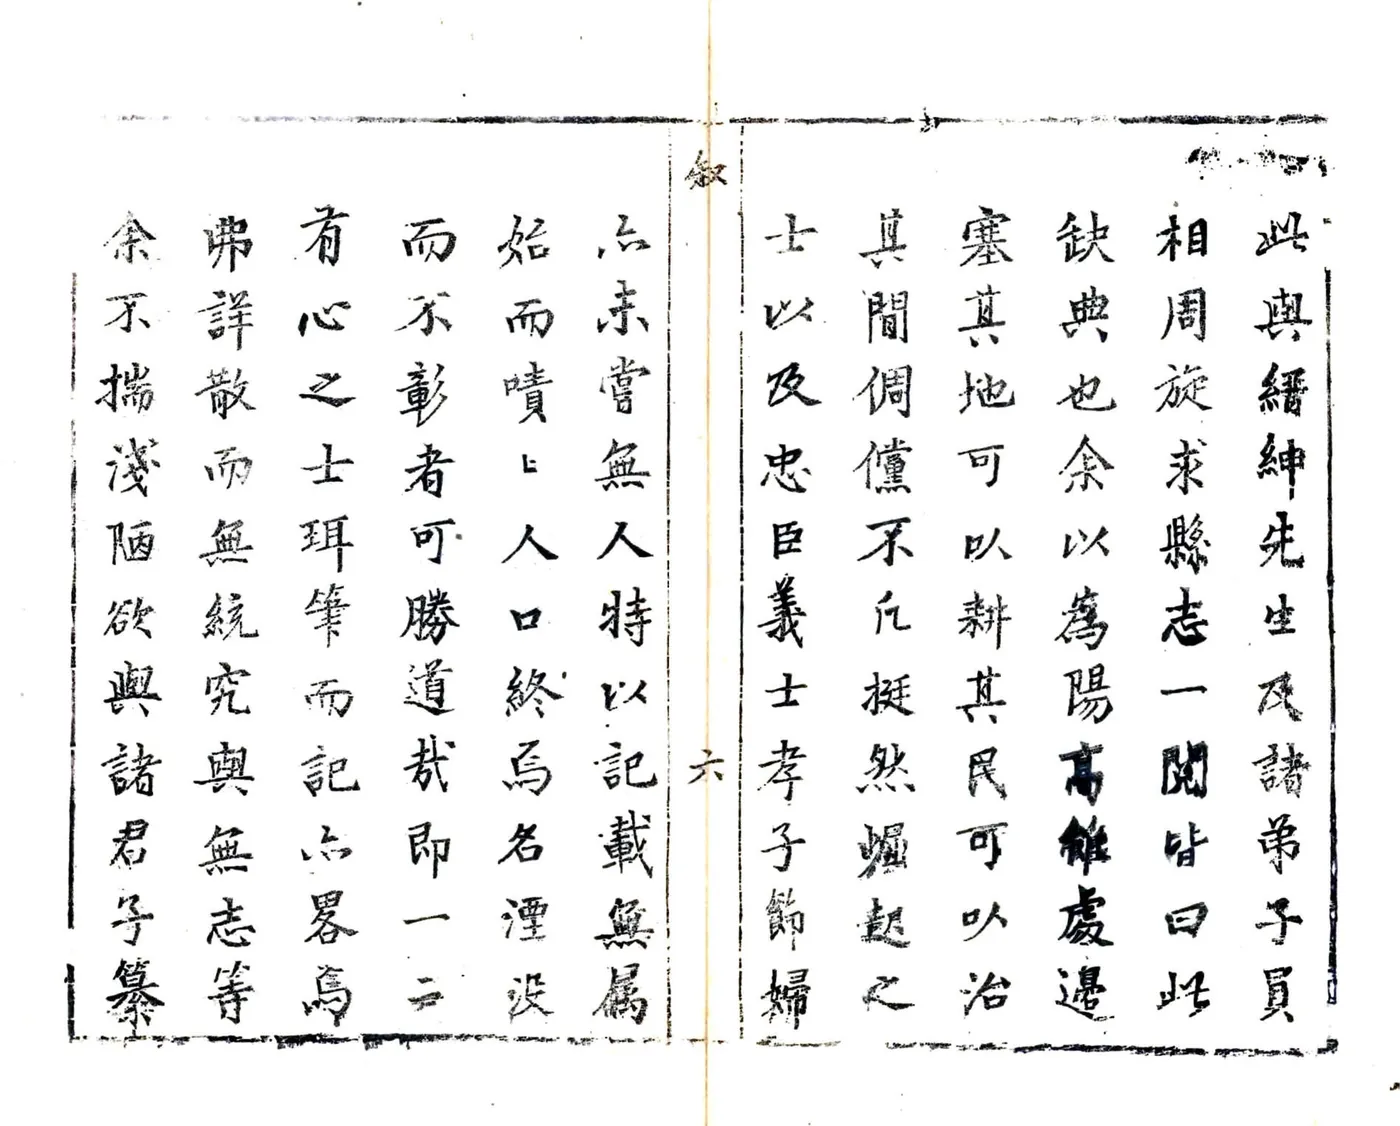 此與縉紳先生及諸弟子員
相周旋求縣志一閱皆曰此
缺典也余以為陽高雖處邊
塞其地可以耕其民可以治
其間倜儻不凡挺然崛起之
士以及忠臣義士孝子節婦
叙
六
亦未嘗無人特以記載無属
始而嘖〻人口終焉名湮没
而不彰者可勝道哉即一二
有心之士珥筆而記亦畧焉
弗詳散而無統究與無志等
余不揣淺陋欲與諸君子纂